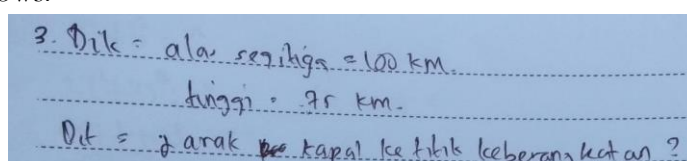 3. Dik = alas segitiga = 100 km.
tinggi = 75 km.
Dit = jarak kapal ke titik keberangkatan ?